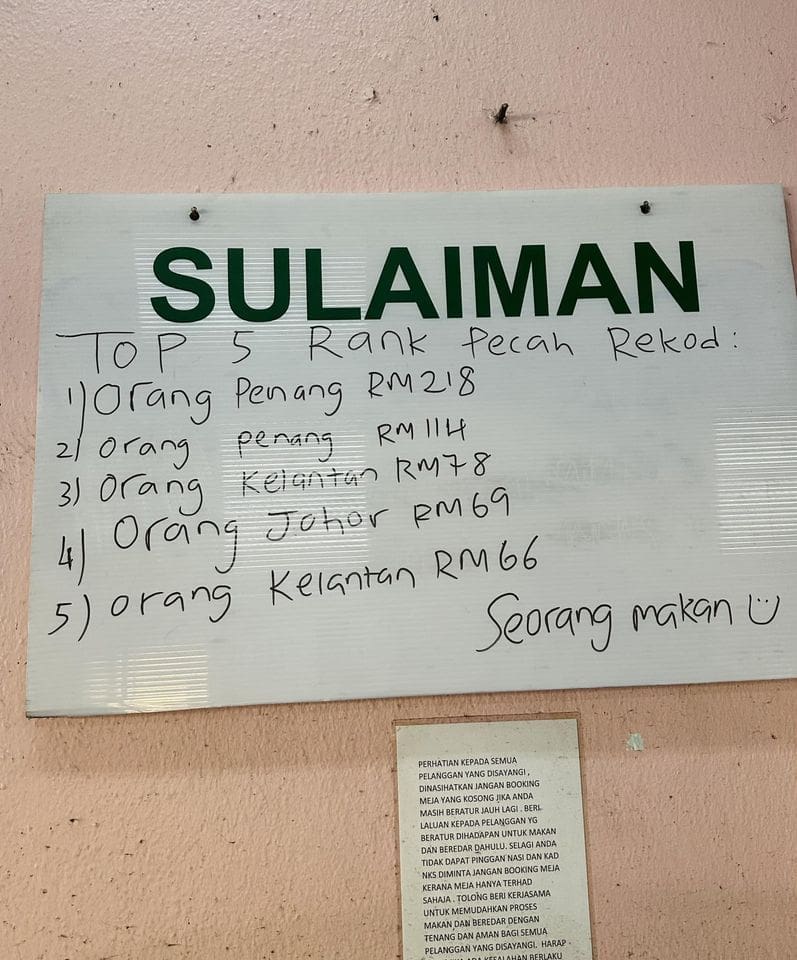 SULAIMAN
TOP 5 Rank Pecah Rekod:
1) Orang Penang RM218
2) Orang penang RM114
3) Orang Kelantan RM78
4) Orang Johor RM69
5) orang Kelantan RM66
Seorang makan
PERHATIAN KEPADA SEMUA
PELANGGAN YANG DISAYANGI ,
DINASIHATKAN JANGAN BOOKING
MEJA YANG KOSONG JIKA ANDA
MASIH BERATUR JAUH LAGI . BERI
LALUAN KEPADA PELANGGAN YG
BERATUR DIHADAPAN UNTUK MAKAN
DAN BEREDAR DAHULU. SELAGI ANDA
TIDAK DAPAT PINGGAN NASI DAN KAD
NKS DIMINTA JANGAN BOOKING MEJA
KERANA MEJA HANYA TERHAD
SAHAJA . TOLONG BERI KERJASAMA
UNTUK MEMUDAHKAN PROSES
MAKAN DAN BEREDAR DENGAN
TENANG DAN AMAN BAGI SEMUA
PELANGGAN YANG DISAYANGI. HARAP
ADA KESALAHAN BERLAKU